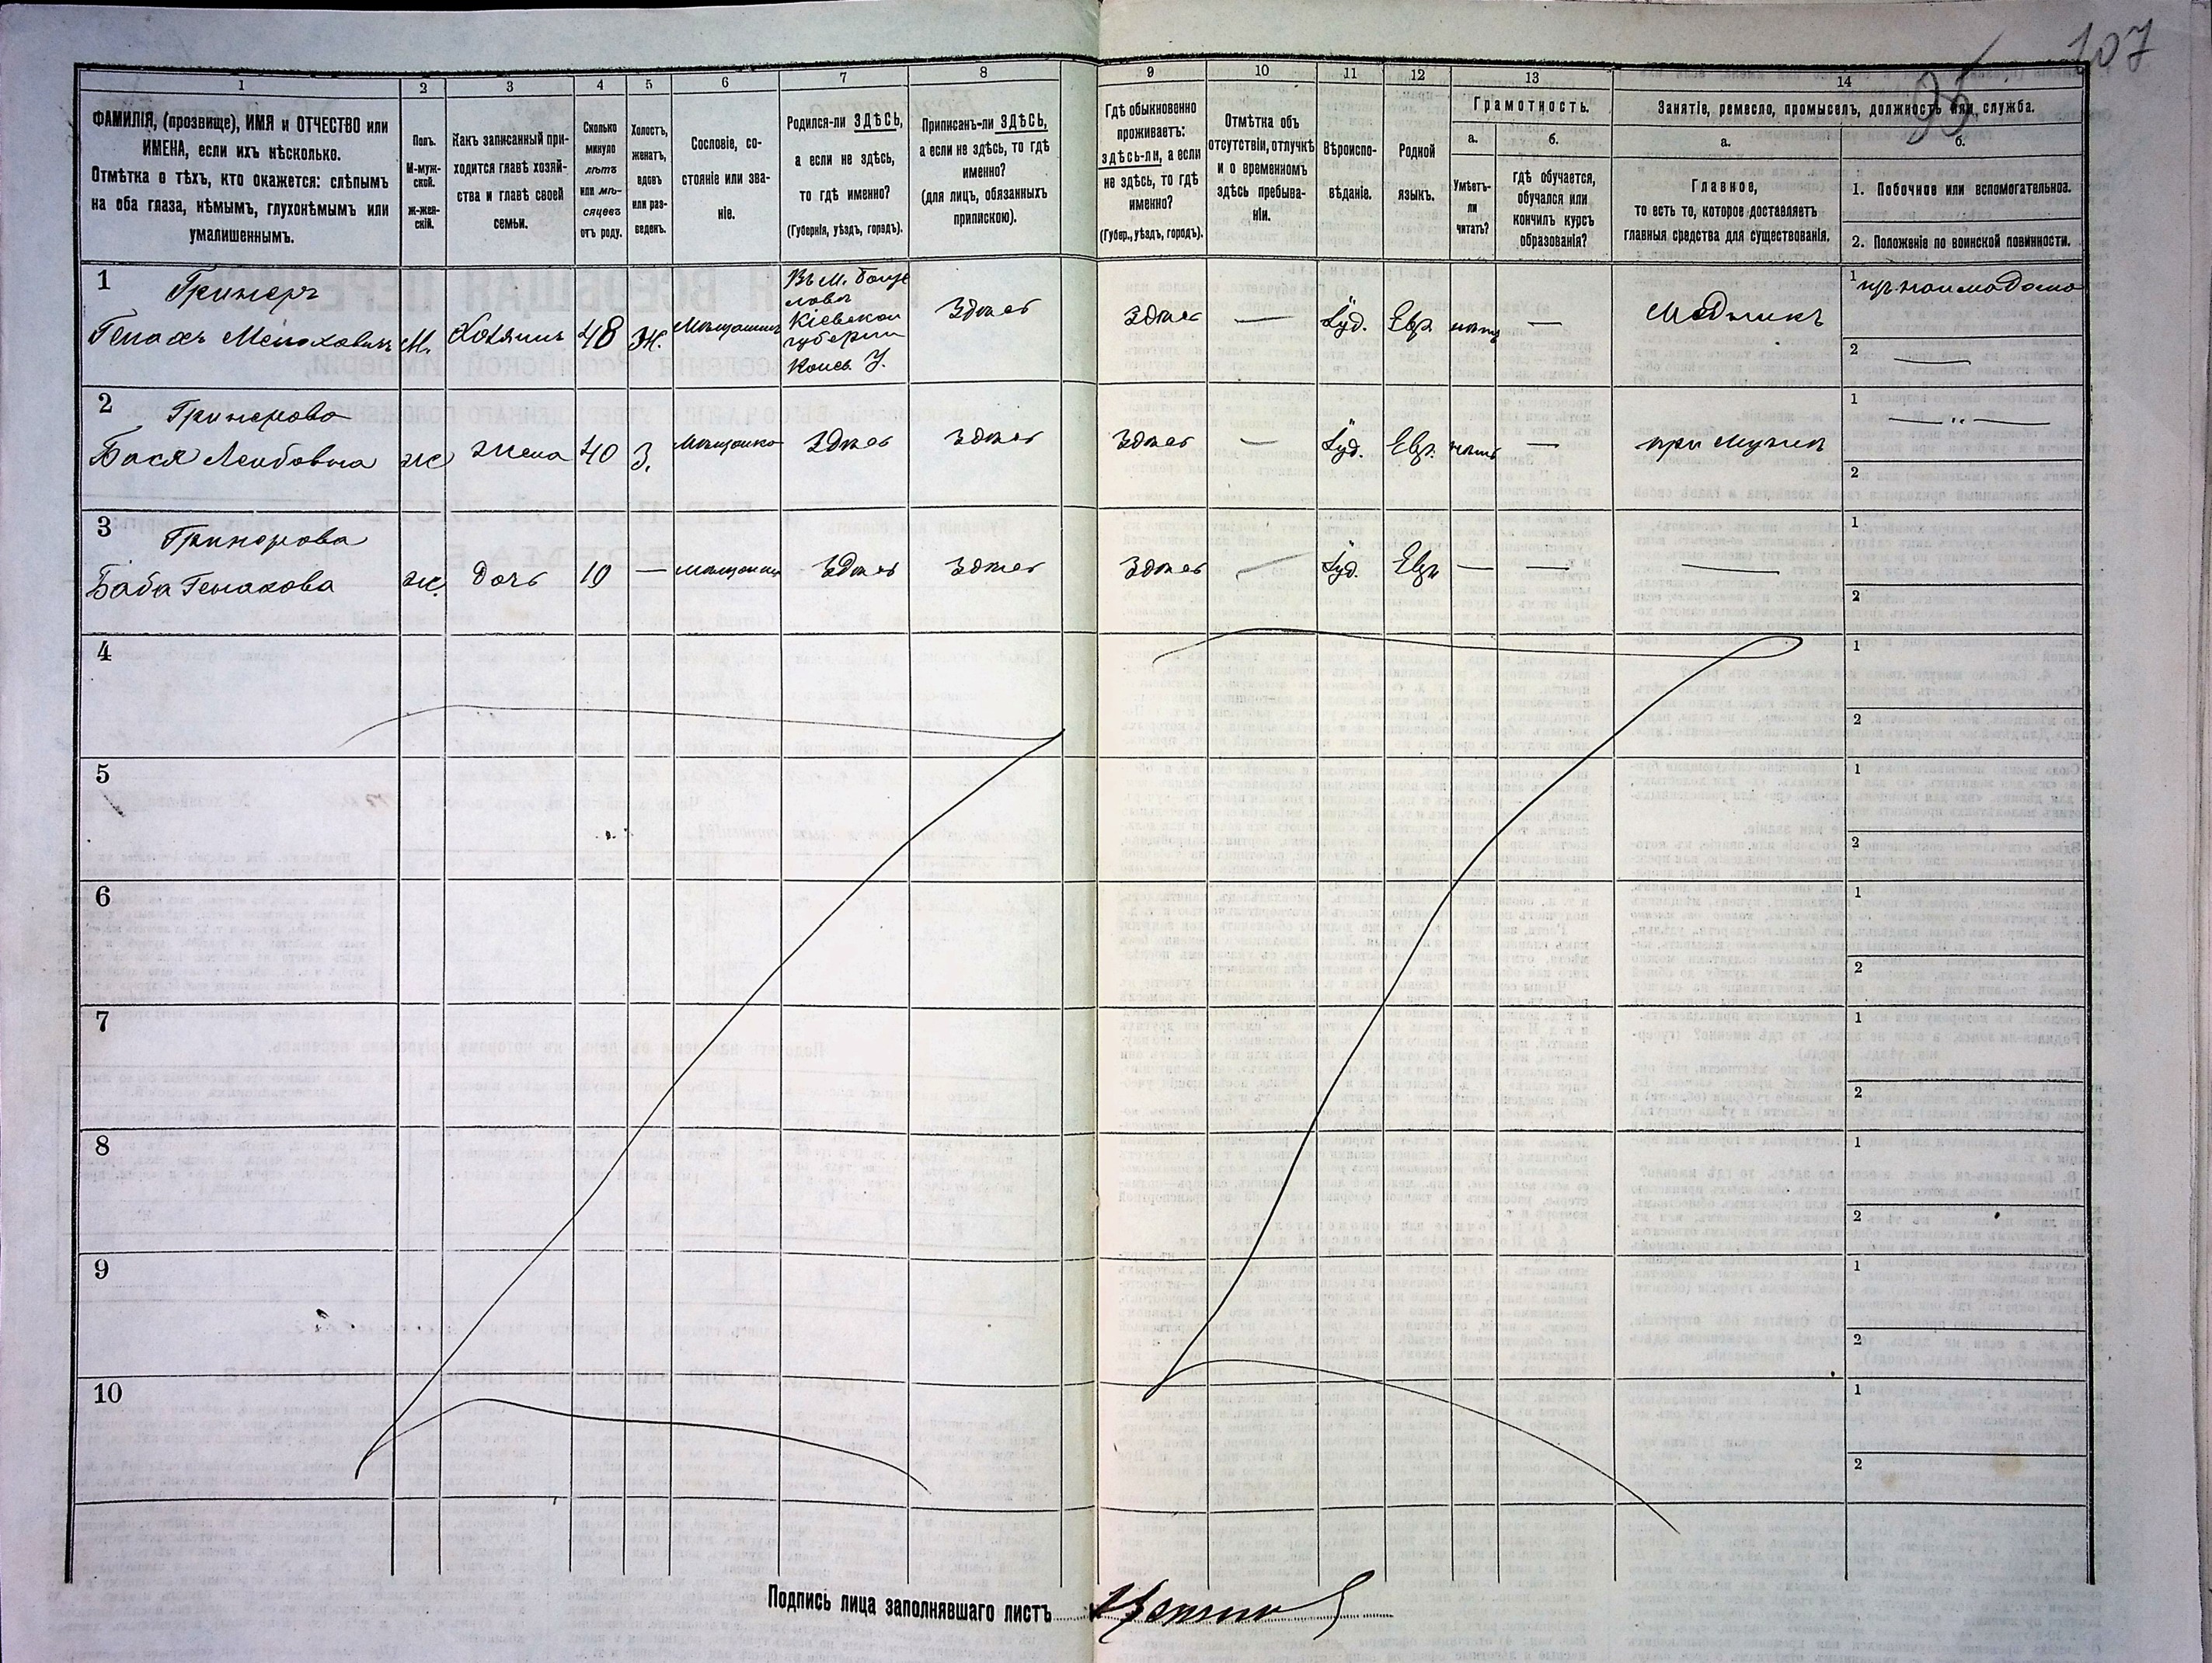 107
95
1
2
3
4
5
6
7
8
9
10
11
12
13
14
ФАМИЛІЯ, (прозвище), ИМЯ и ОТЧЕСТВО или
ИМЕНА, если ихъ нѣсколько.
Отмѣтка о тѣхъ, кто окажется: слѣпымъ
на оба глаза, нѣмымъ, глухонѣмымъ или
умалишеннымъ.
Полъ.
М-муж-
ской.
ж-жен-
скій.
Какъ записанный при-
ходится главѣ хозяй-
ства и главѣ своей
семьи.
Сколько
минуло
лѣтъ
или мѣ-
сяцевъ
отъ роду.
Холостъ,
женатъ,
вдовъ
или раз-
веденъ.
Сословіе, со-
стояніе или зва-
ніе.
Родился-ли ЗДѢСЬ,
а если не здѣсь,
то гдѣ именно?
(Губернія, уѣздъ, городъ).
Приписанъ-ли ЗДѢСЬ,
а если не здѣсь, то гдѣ
именно?
(для лицъ, обязанныхъ
припискою).
Гдѣ обыкновенно
проживаетъ:
здѣсь-ли, а если
не здѣсь, то гдѣ
именно?
(Губер., уѣздъ, городъ).
Отмѣтка объ
отсутствіи, отлучкѣ
и о временномъ
здѣсь пребыва-
ніи.
Вѣроиспо-
вѣданіе.
Родной
языкъ.
Грамотность.
а.
б.
Умѣетъ-
ли
читать?
гдѣ обучается,
обучался или
кончилъ курсъ
образованія?
Занятіе, ремесло, промыселъ, должность или служба.
а.
б.
Главное,
то есть то, которое доставляетъ
главныя средства для существованія.
1. Побочное или вспомогательное.
2. Положеніе по воинской повинности.
1
Гринеръ
Генахъ Меноховичъ
М.
Хозяинъ
48
Ж.
Мѣщанинъ
Въ М. Богу
славъ
Кіевской
губерніи
Канев. У.
Здѣсь
Здѣсь
—
Іуд.
Евр.
—
1
2
—
2
Гринерова
Бася Лейбовна
ж
жена
40
З.
мѣщанка
Здѣсь
Здѣсь
Здѣсь
—
Іуд.
Евр.
нѣтъ
—
при мужѣ
1
— " —
2
3
Гринерова
Баба Генахова
ж.
дочь
10
—
Здѣсь
Здѣсь
Здѣсь
—
Іуд.
Евр
—
—
—
1
2
4
1
2
5
1
2
6
1
2
7
1
2
8
1
2
9
1
2
10
1
2
Подпись лица заполнявшаго листъ